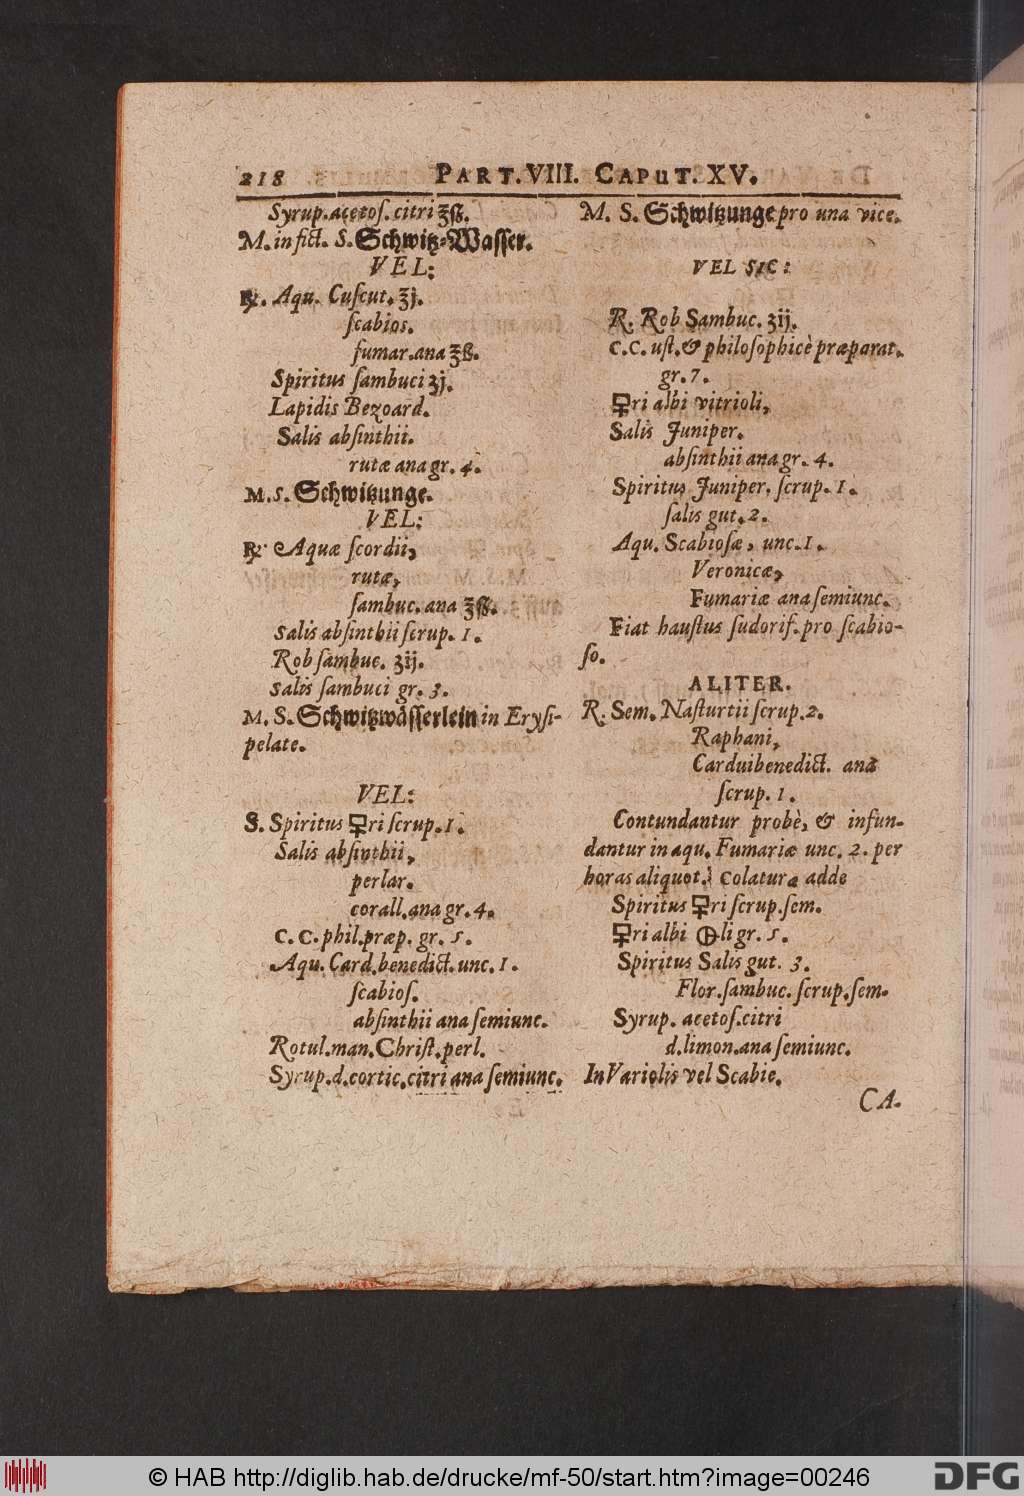 218 PART. VIII. CAPUT. XV.
Syrup. acetoſ. citri ℥ß.
M. in fict. S. Schwitz-Waſſer.
VEL:
℞. Aqu. Cuſcut. ℥j.
ſcabios.
fumar. ana ℥ß.
Spiritus ſambuci ʒj.
Lapidis Bezoard.
Salis abſinthii.
rutæ ana gr. 4.
M. S. Schwitzunge.
VEL:
℞. Aquæ ſcordii,
rutæ,
ſambuc. ana ℥ß.
Salis abſinthii ſcrup. 1.
Rob ſambuc. ʒij.
Salis ſambuci gr. 3.
M. S. Schwitzwäſſerlein in Eryſi-
pelate.
VEL:
S. Spiritus 🜿ri ſcrup. 1.
Salis abſinthii,
perlar.
corall. ana gr. 4.
C. C. phil. præp. gr. 5.
Aqu. Card. benedict. unc. 1.
ſcabioſ.
abſinthii ana ſemiunc.
Rotul. man. Chriſt. perl.
Syrup. d. cortic. citri ana ſemiunc.
M. S. Schwitzunge pro una vice.
VEL SIC:
R. Rob Sambuc. ʒij.
C. C. uſt. & philoſophicè præparat.
gr. 7.
🜿ri albi vitrioli,
Salis Juniper.
abſinthii ana gr. 4.
Spiritus Juniper. ſcrup. 1.
ſalis gut. 2.
Aqu. Scabioſæ, unc. 1.
Veronicæ,
Fumariæ ana ſemiunc.
Fiat hauſtus ſudorif. pro ſcabio-
ſo.
ALITER.
R. Sem. Naſturtii ſcrup. 2.
Raphani,
Carduibenedict. ana
ſcrup. 1.
Contundantur probè, & infun-
dantur in aqu. Fumariæ unc. 2. per
horas aliquot. Colaturæ adde
Spiritus 🜿ri ſcrup. ſem.
🜿ri albi 🜖li gr. 5.
Spiritus Salis gut. 3.
Flor. ſambuc. ſcrup. ſem.
Syrup. acetoſ. citri
d. limon. ana ſemiunc.
In Variolis vel Scabie.
CA.
© HAB http://diglib.hab.de/drucke/mf-50/start.htm?image=00246 DFG